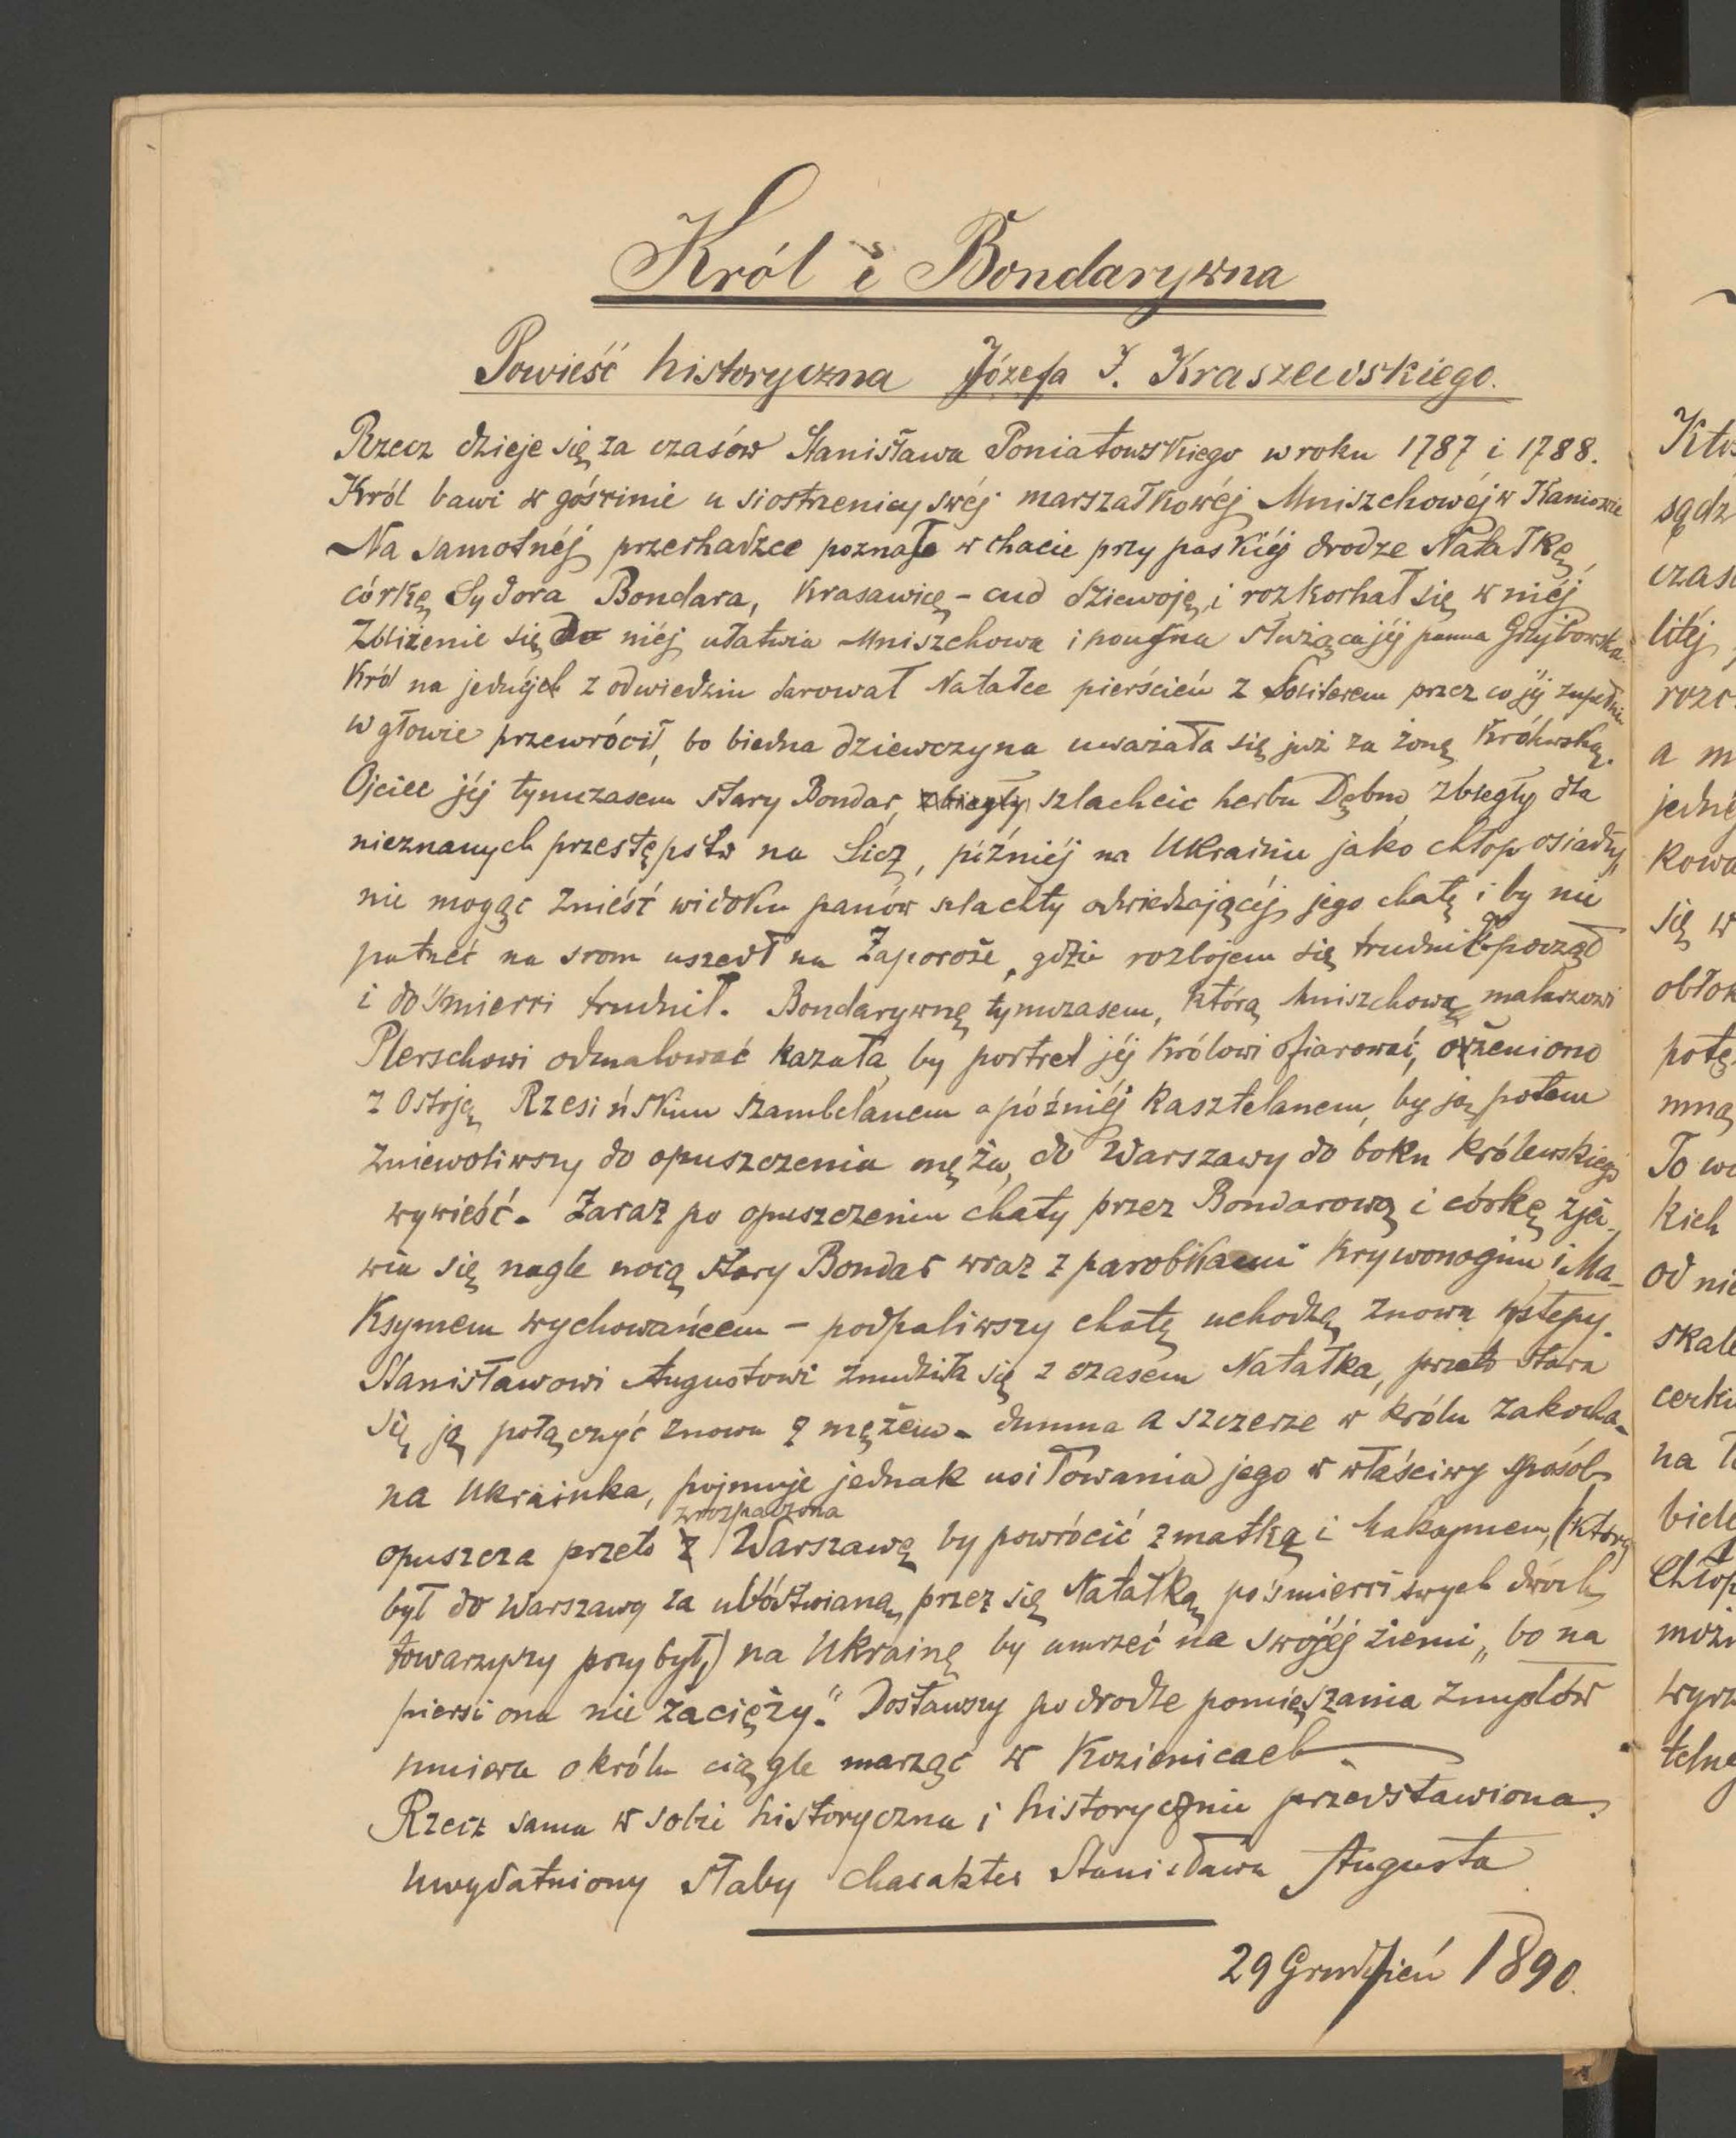 Król i Bondarywna
Powieść historyczna Józefa I. Kraszewskiego.
Rzecz dzieje się za czasów Stanisława Poniatowskiego w roku 1787 i 1788.
Król bawi w gościnie u siostrzenicy swéj marszałkowéj Mniszchowéj w Kaniowie
Na samotnéj przechadzce poznaje w chacie przy paskiéj drodze Natałkę,
córkę Sydora Bondara, krasawicę - cud dziewoję, i rozkochał się w niéj
Zbliżenie się do niéj ułatwia Mniszchowa i poufna służąca jéj panna Grzybowska.
Król na jednéj z odwiedzin darował Natałce pierścień z soliterem przez co jéj zupełnie
w głowie przewrócił, bo biedna dziewczyna uważała się już za żonę królewską.
Ojciec jéj tymczasem stary Bondar, zbiegły szlachcic herbu Dębno, zbiegły dla
nieznanych przestępstw na Sicz, później na Ukrainie jako chłop osiadły,
nie mogąc znieść widoku panów szlachty odwiedzającéj jego chatę i by nie
patrzeć na srom uszedł na Zaporoże, gdzie rozbojem się trudnić począł
i do śmierci trudnił. Bondarywnę tymczasem, którą Mniszchowa malarzowi
Plerschowi odmalować kazała, by portret jéj królowi ofiarować, ożeniono
z Ostoją Rzesińskim szambelanem a późniéj kasztelanem, by ją potem
zniewoliwszy do opuszczenia męża, do Warszawy do boku królewskiego
wywieść. Zaraz po opuszczeniu chaty przez Bondarową i córkę zja-
wia się nagle nocą stary Bondar wraz z parobkami Krywonogim i Ma-
ksymem wychowańcem - podpaliwszy chatę uchodzą znowu w stepy.
Stanisławowi Augustowi znudziła się z czasem Natałka, przeto stara
się ją połączyć znowu z mężem. Dumna a szczerze w królu zakocha-
na Ukrainka, pojmuje jednak usiłowania jego w właściwy sposób
zrozpaczona
opuszcza przeto z Warszawę by powrócić z matką i Maksymem, (który
był do Warszawy za ubóstwianą przez się Natałką po śmierci swych dwóch
towarzyszy przybył,) na Ukrainę by umrzeć na swojéj ziemi „bo na
piersi ona nie zacięży." Dostawszy po drodze pomięszania zmysłów
umiera o królu ciągle marząc w Kozienicach.
Rzecz sama w sobie historyczna i historycznie przedstawiona,
uwydatniony słaby charakter Stanisława Augusta
29 Grudzień 1890.